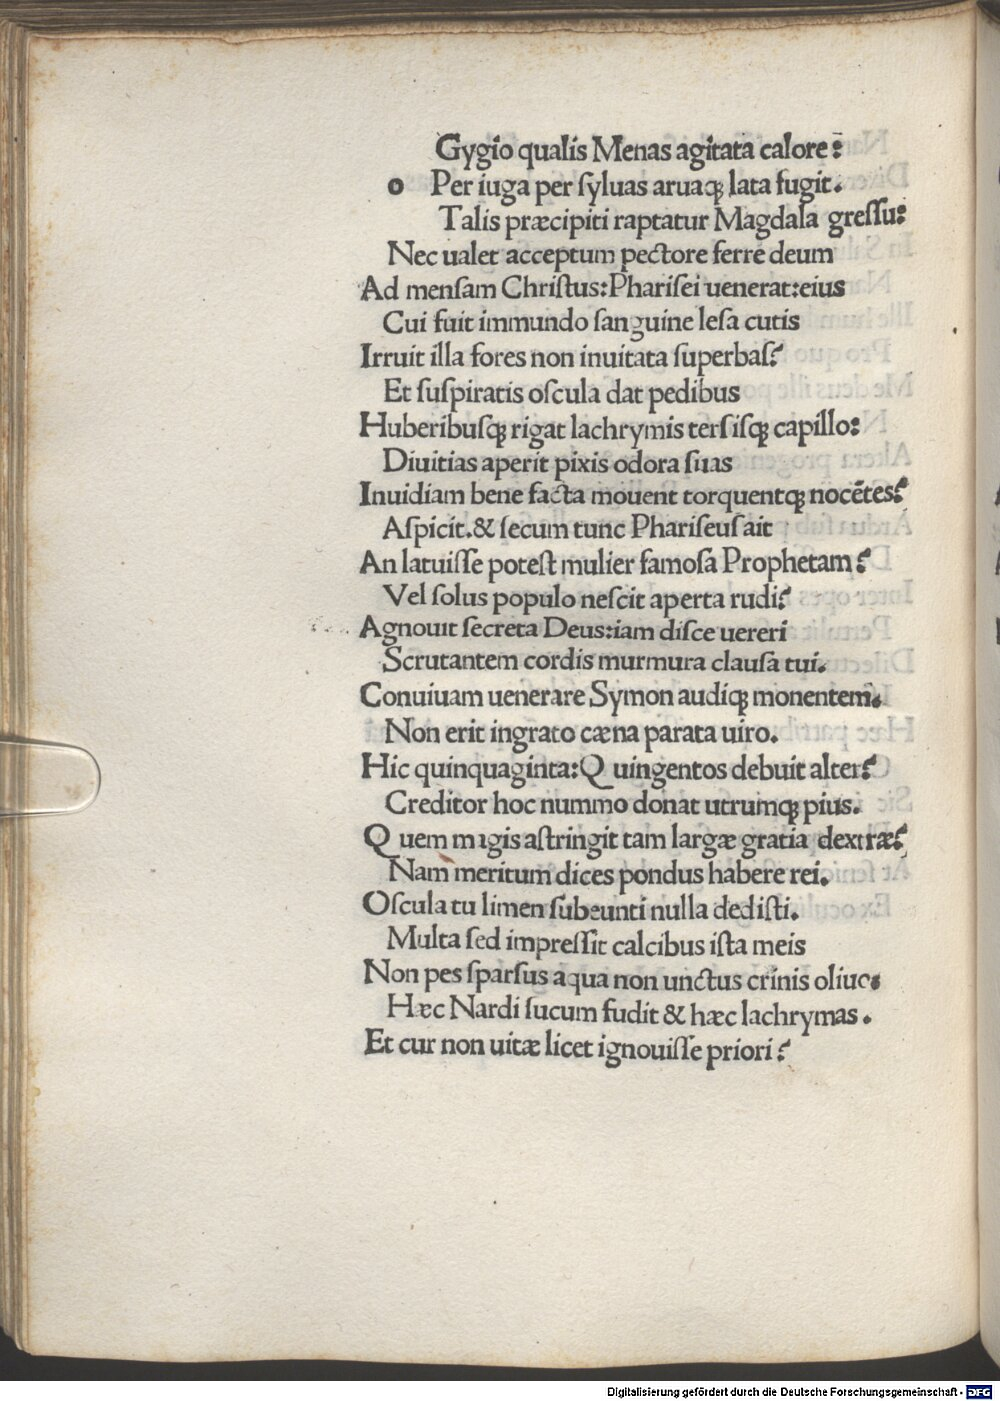 Gygio qualis Menas agitata calore:
o Per iuga per syluas aruaqꝫ lata fugit.
Talis præcipiti raptatur Magdala gressu:
Nec ualet acceptum pectore ferre deum
Ad mensam Christus:Pharisei uenerat:eius
Cui fuit immundo sanguine lesa cutis
Irruit illa fores non inuitata superbas?
Et suspiratis oscula dat pedibus
Huberibusqꝫ rigat lachrymis tersisqꝫ capillo:
Diuitias aperit pixis odora suas
Inuidiam bene facta mouent torquentqꝫ nocētes?
Aspicit.& secum tunc Phariseus ait
An latuisse potest mulier famosa Prophetam?
Vel solus populo nescit aperta rudi?
Agnouit secreta Deus:iam disce uereri
Scrutantem cordis murmura clausa tui.
Conuiuam uenerare Symon audiqꝫ monentem.
Non erit ingrato cæna parata uiro.
Hic quinquaginta:Q uingentos debuit alter?
Creditor hoc nummo donat utrumqꝫ pius.
Q uem magis astringit tam largæ gratia dextræ?
Nam meritum dices pondus habere rei.
Oscula tu limen subeunti nulla dedisti.
Multa sed impressit calcibus ista meis
Non pes sparsus aqua non unctus crinis oliuo:
Hæc Nardi sucum fudit & hæc lachrymas.
Et cur non uitæ licet ignouisse priori?
Digitalisierung gefördert durch die Deutsche Forschungsgemeinschaft - DFG